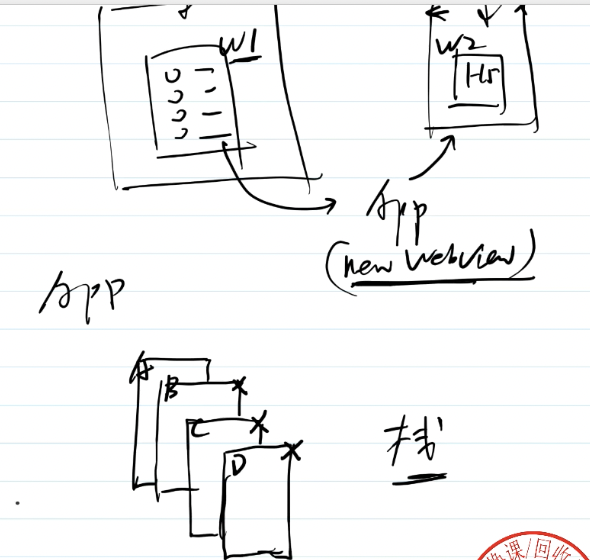 W1
W2
H5
App
(new webview)
App
A
B
C
D
栈
课/回收